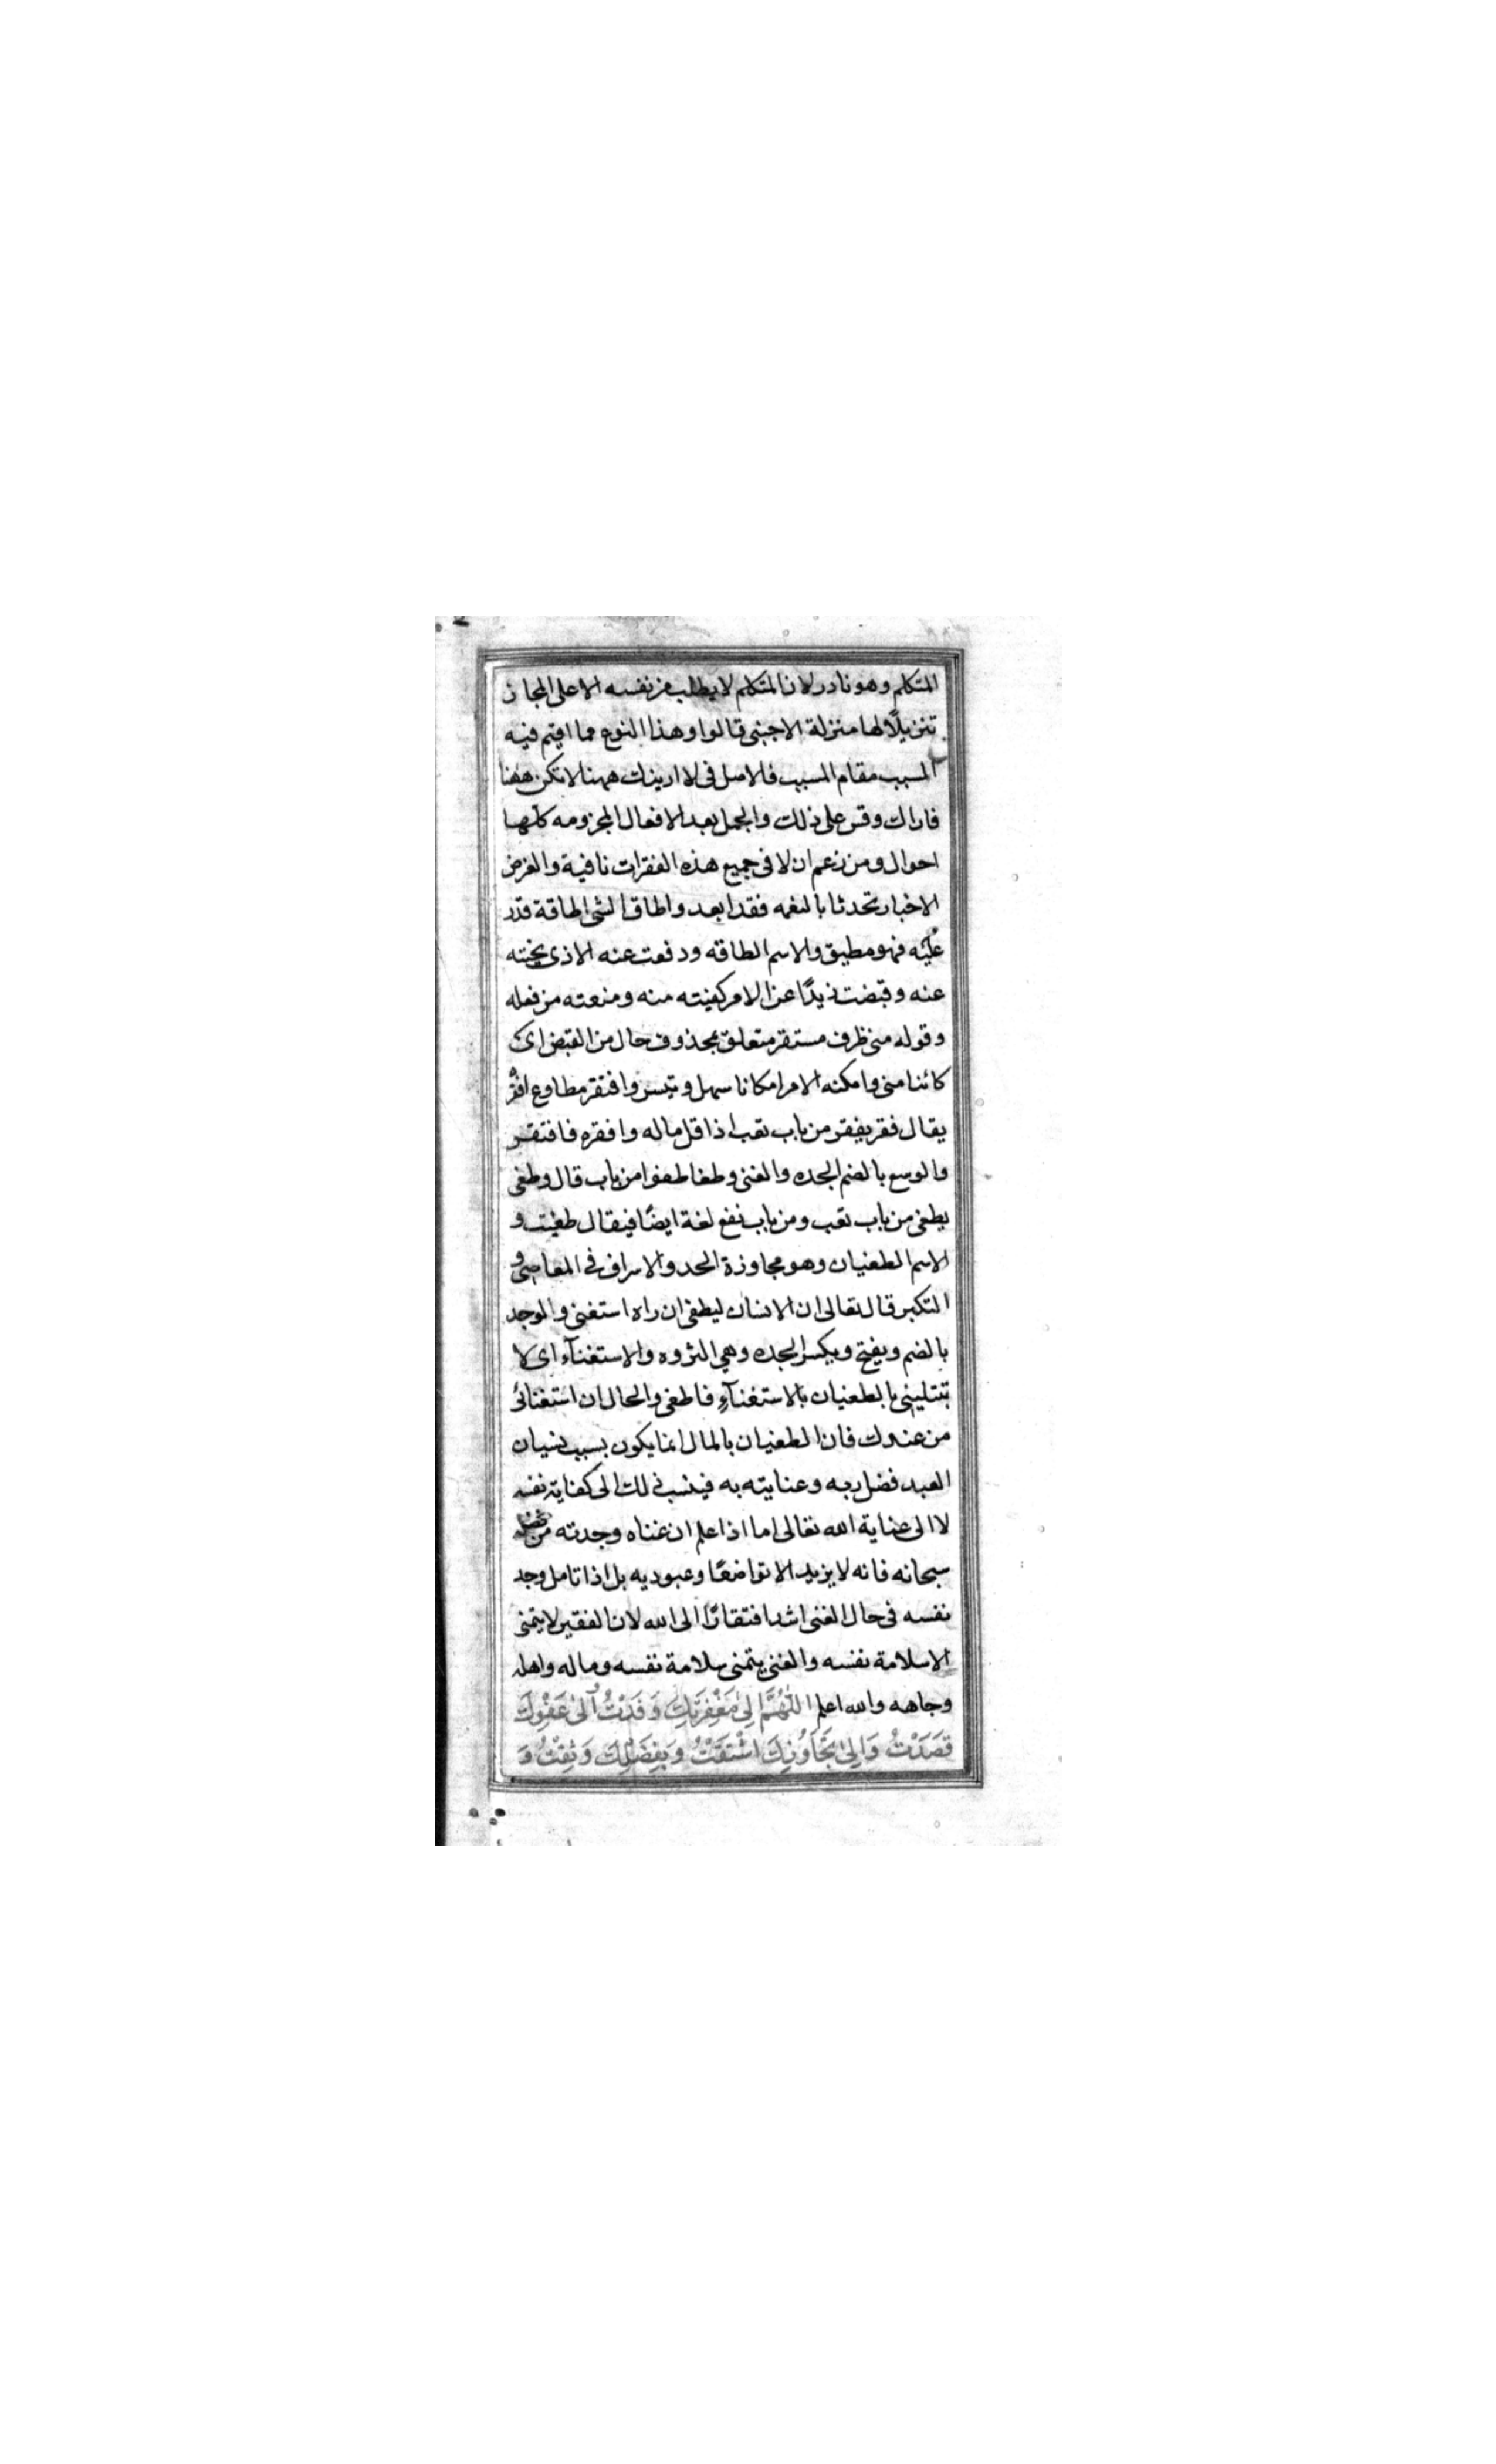 المتكلم وهو نادر لان المتكلم لا يطلب من نفسه الا على المجاز
تنزيلًا لها منزلة الاجنبى قالوا وهذا النوع مما اقيم فيه
المسبب مقام السبب فالاصل فى لا ارينك ههنا لا تكن ههنا
فاراك وقس على ذلك والجمل بعد الافعال المجزومه كلها
احوال ومن زعم ان لا فى جميع هذه الفقرات نافية والغرض
الاخبار تحدثا بالنعمه فقد ابعد واطاق الشى اطاقة قدر
عليه فهو مطيق والاسم الطاقه ودفعت عنه الاذى نحيته
عنه وقبضت زيدًا عن الامر كفيته منه ومنعته من فعله
وقوله منى ظرف مستقر متعلق بمحذوف حال من القبض اى
كائنا منى وامكنه الامر امكانا سهل وتيسر وافتقر مطاوع افقر
يقال فقر يفقر من باب تعب اذا قل ماله وافقره فافتقر
والوسع بالضم الجده والغنى وطغا طغوا من باب قال وطغى
يطغى من باب تعب ومن باب نفع لغة ايضًا فيقال طغيت و
الاسم الطغيان وهو مجاوزة الحد والاسراف فى المعاصى و
التكبر قال تعالى ان الانسان ليطغى ان راه استغنى والوجد
بالضم ويفتح ويكسر الجده وهى الثروه والاستغنآء اى لا
تبتلينى بالطغيان بالاستغنآءِ فاطغى والحال ان استغنائى
من عندك فان الطغيان بالمال انما يكون بسبب نسيان
العبد فضل ربه وعنايته به فينسب ذلك الى كفاية نفسه
لا الى عناية الله تعالى اما اذا علم ان غناه وجدته من فضله
سبحانه فانه لا يزيد الا تواضعًا وعبوديه بل اذا تامل وجد
نفسه فى حال الغنى اشد افتقارًا الى الله لان الفقير لا يتمنى
الا سلامة نفسه والغنى يتمنى سلامة نفسه وماله واهله
وجاهه والله اعلم اللّٰهُمَّ اِلىٰ مَغْفِرَتِكَ وَفَدْتُ وَاِلىٰ عَفْوِكَ
قَصَدْتُ وَاِلىٰ تَجَاوُزِكَ اشْتَقْتُ وَبِفَضْلِكَ وَثِقْتُ وَ